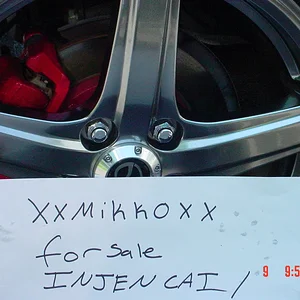 XXMikkOXX
for sale
INJEN CAI/
9 9:5